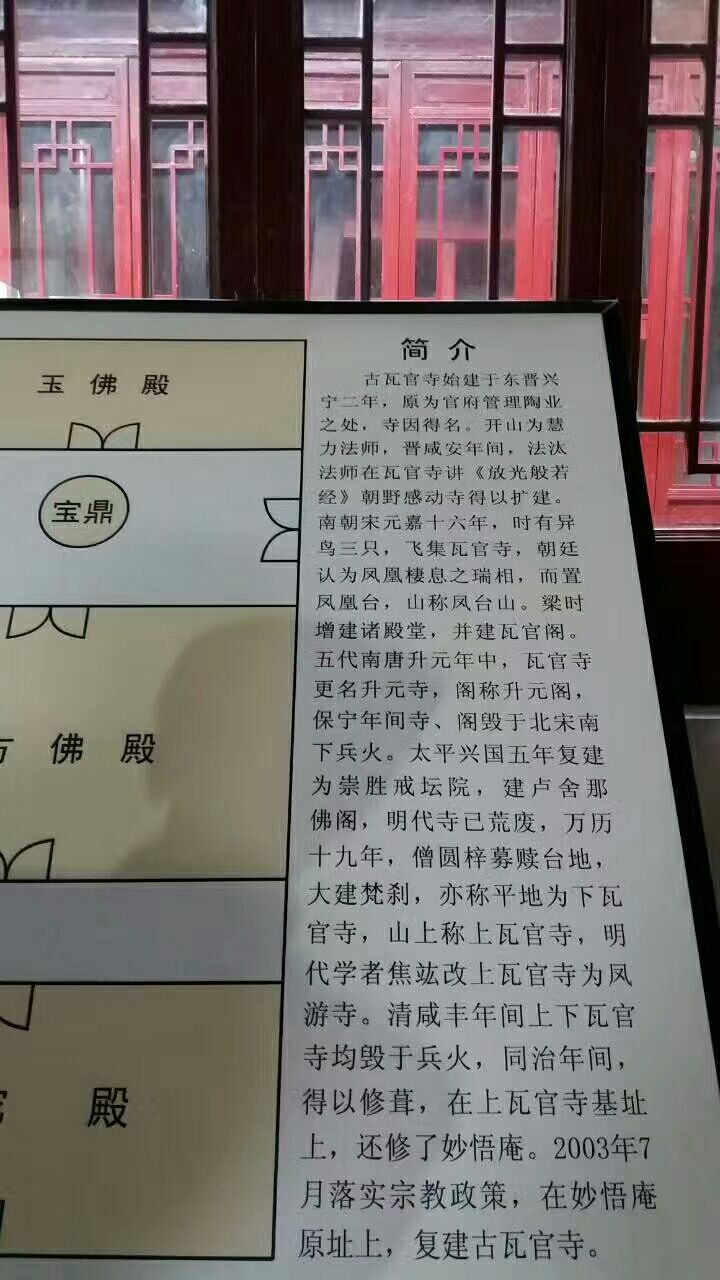 简介
古瓦官寺始建于东晋兴
宁二年，原为官府管理陶业
之处，寺因得名。开山为慧
力法师，晋咸安年间，法汰
法师在瓦官寺讲《放光般若
经》朝野感动寺得以扩建。
南朝宋元嘉十六年，时有异
鸟三只，飞集瓦官寺，朝廷
认为凤凰棲息之瑞相，而置
凤凰台，山称凤台山。梁时
增建诸殿堂，并建瓦官阁。
五代南唐升元年中，瓦官寺
更名升元寺，阁称升元阁，
保宁年间寺、阁毁于北宋南
下兵火。太平兴国五年复建
为崇胜戒坛院，建卢舍那
佛阁，明代寺已荒废，万历
十九年，僧圆梓募赎台地，
大建梵刹，亦称平地为下瓦
官寺，山上称上瓦官寺，明
代学者焦竑改上瓦官寺为凤
游寺。清咸丰年间上下瓦官
寺均毁于兵火，同治年间，
得以修葺，在上瓦官寺基址
上，还修了妙悟庵。2003年7
月落实宗教政策，在妙悟庵
原址上，复建古瓦官寺。
玉佛殿
宝鼎
佛殿
殿